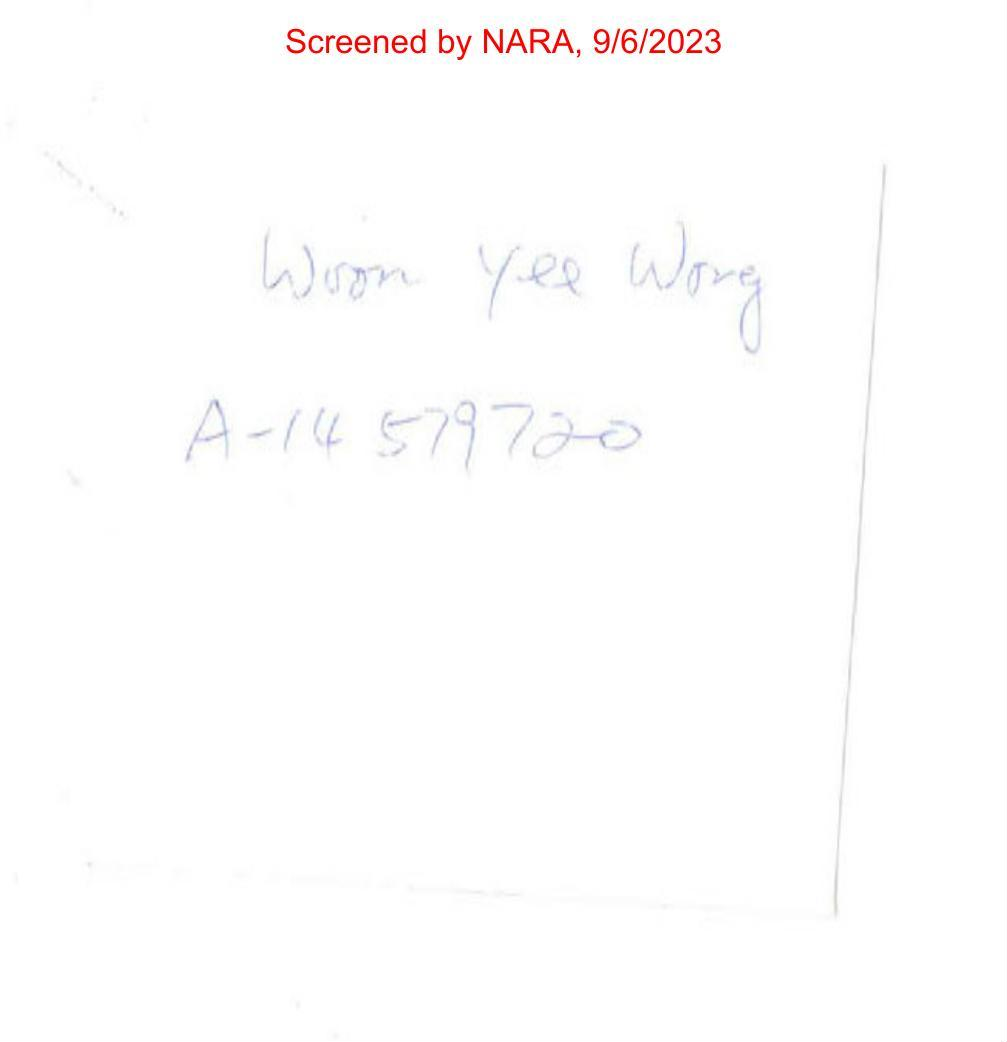 Screened by NARA, 9/6/2023
Woon Yee Wong
A-14 579720